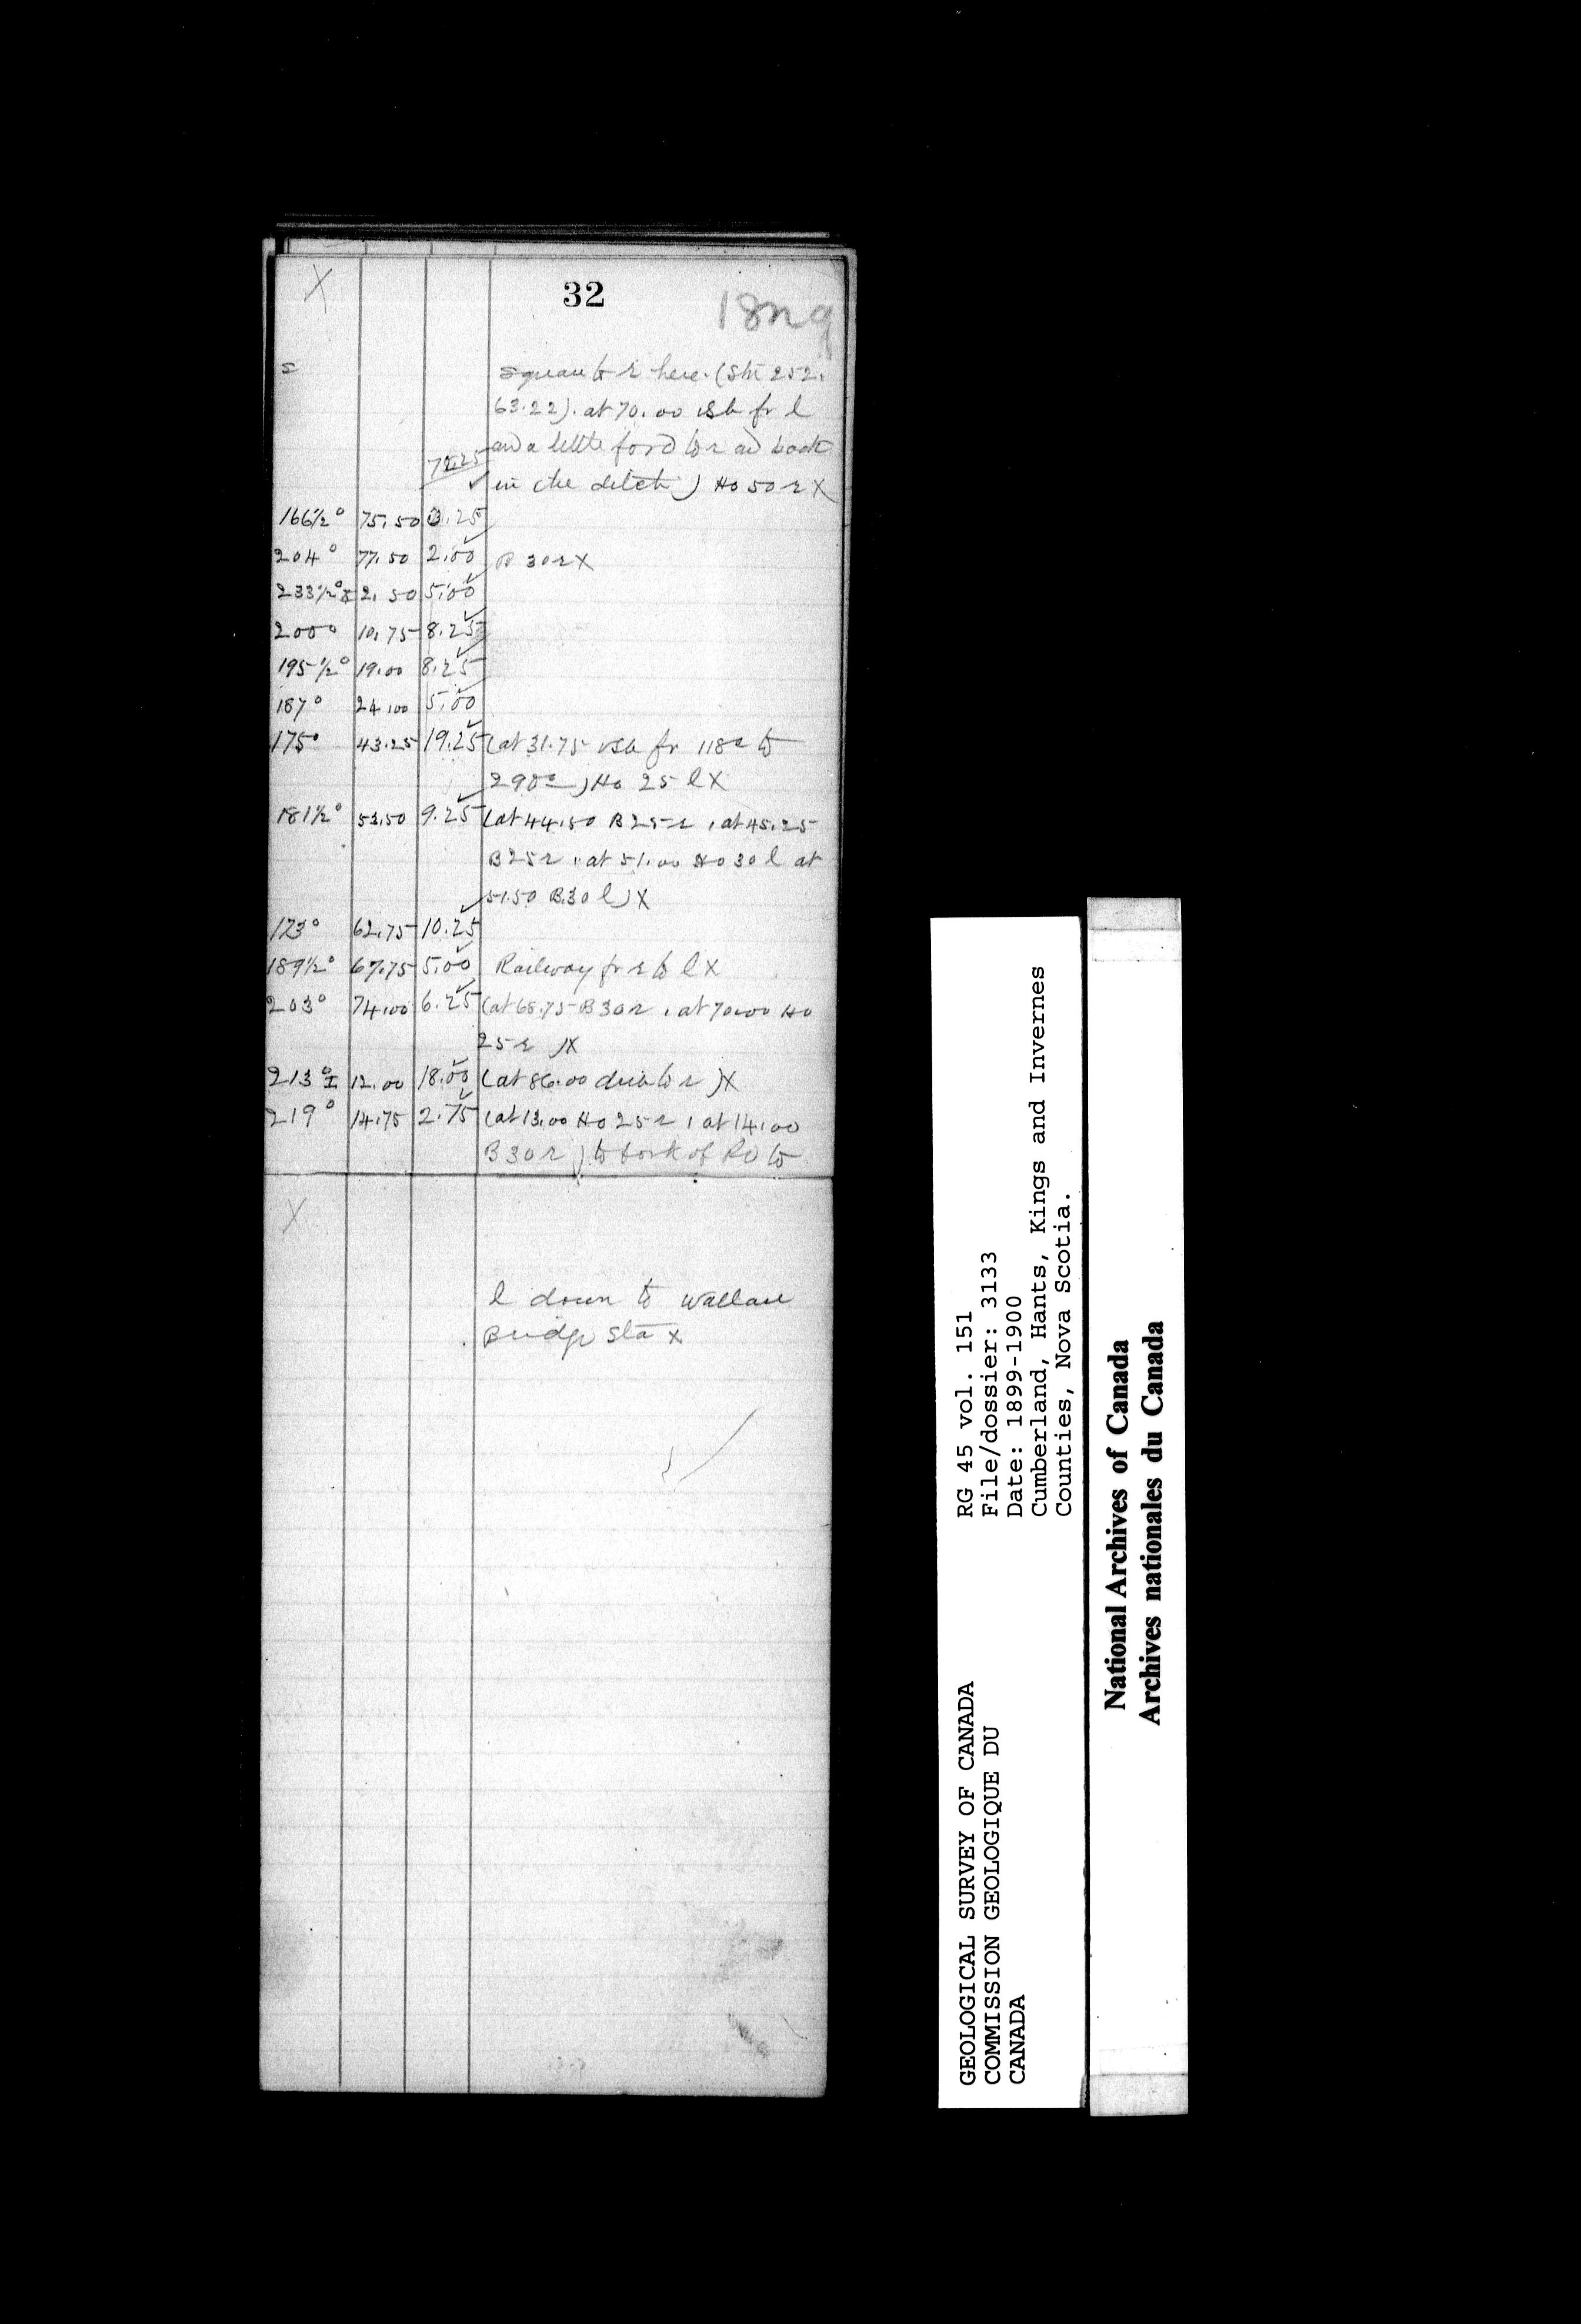 X
32
18ng
square to r here. (Stn 252.
63.22). at 70.00 vsb fr l
and a little ford to r and back
72.25
in the ditch) Ho 50 r X
166½° 75.50 3.25
204° 77.50 2.00 B 30 r X
233½° I 2.50 5.00
200° 10.75 8.25
195½° 19.00 8.25
187° 24.00 5.00
175° 43.25 19.25 (at 31.75 vsb fr 118° to
290°) Ho 25 l X
181½° 53.50 9.25 (at 44.50 B 25 r, at 45.25
B 25 r, at 51.00 Ho 30 l at
51.50 B.30 l) X
173° 62.75 10.25
189½° 67.75 5.00 Railway fr r to l X
203° 74.00 6.25 (at 68.75 B 30 r, at 70.00 Ho
25 r) X
213° I 12.00 18.00 (at 86.00 to r) X
219° 14.75 2.75 (at 13.00 Ho 25 r, at 14.00
B 30 r) to fork of Rd to
X
l down to Wallace
Bridge Sta X
RG 45 vol. 151
File/dossier: 3133
Date: 1899-1900
Cumberland, Hants, Kings and Invernes
Counties, Nova Scotia.
GEOLOGICAL SURVEY OF CANADA
COMMISSION GEOLOGIQUE DU
CANADA
National Archives of Canada
Archives nationales du Canada